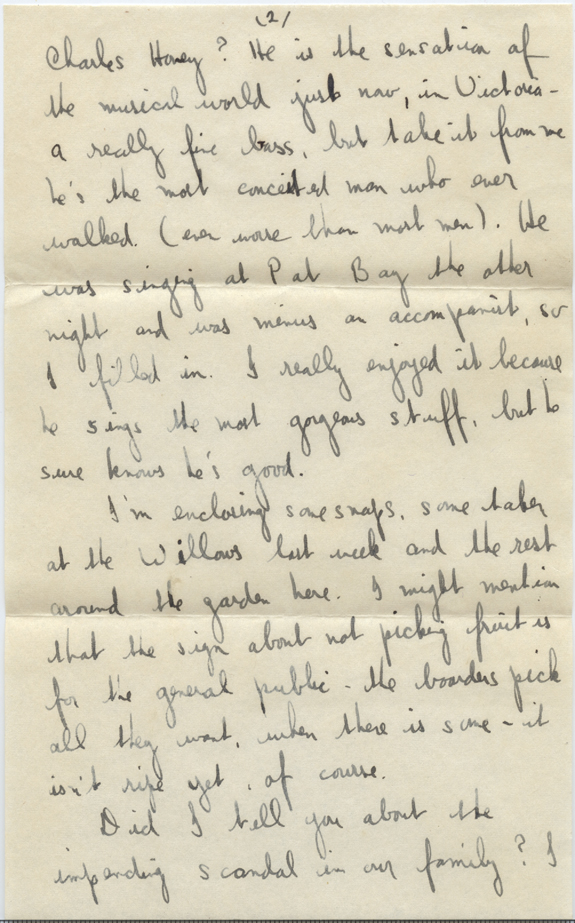 (2)
Charles Honey? He is the sensation of
the musical world just now, in Victoria -
a really fine bass, but take it from me
he's the most conceited man who ever
walked. (even worse than most men). He
was singing at Pat Bay the other
night and was minus an accompanist, so
I filled in. I really enjoyed it because
he sings the most gorgeous stuff, but he
sure knows he's good.
I'm enclosing some snaps, some taken
at the Willows last week and the rest
around the garden here. I might mention
that the sign about not picking fruit is
for the general public - the boarders pick
all they want, when there is some - it
isn't ripe yet, of course.
Did I tell you about the
impending scandal in our family? I